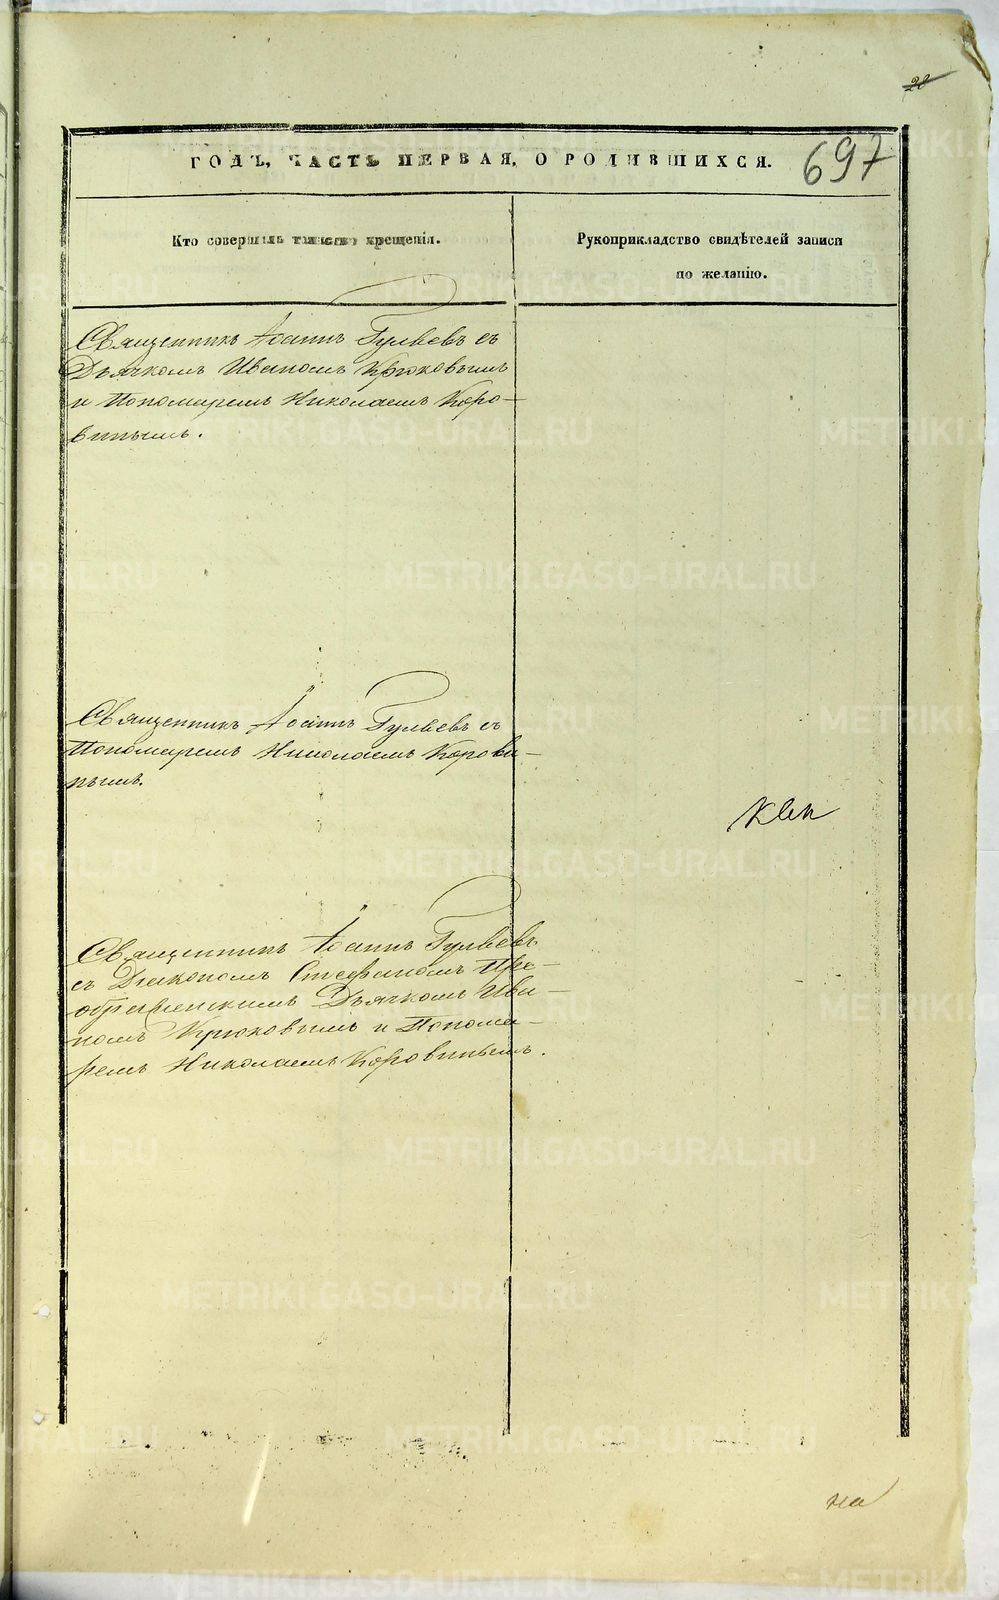 28
697
ГОДЪ, ЧАСТЬ ПЕРВАЯ, О РОДИВШИХСЯ.
Кто совершилъ таинство крещенія.
Рукоприкладство свидѣтелей записи
по желанію.
Священникъ Іоаннъ Гуляевъ съ
Дьячкомъ Иваномъ Крюковымъ
и Пономаремъ Николаемъ Коро-
винымъ.
Священникъ Іоаннъ Гуляевъ съ
Пономаремъ Николаемъ Корови-
нымъ.
Священникъ Іоаннъ Гуляевъ
съ Діакономъ Стефаномъ Пре-
ображенскимъ Дьячкомъ Ива-
номъ Крюковымъ и Понома-
ремъ Николаемъ Коровинымъ.
METRIKI.GASO-URAL.RU